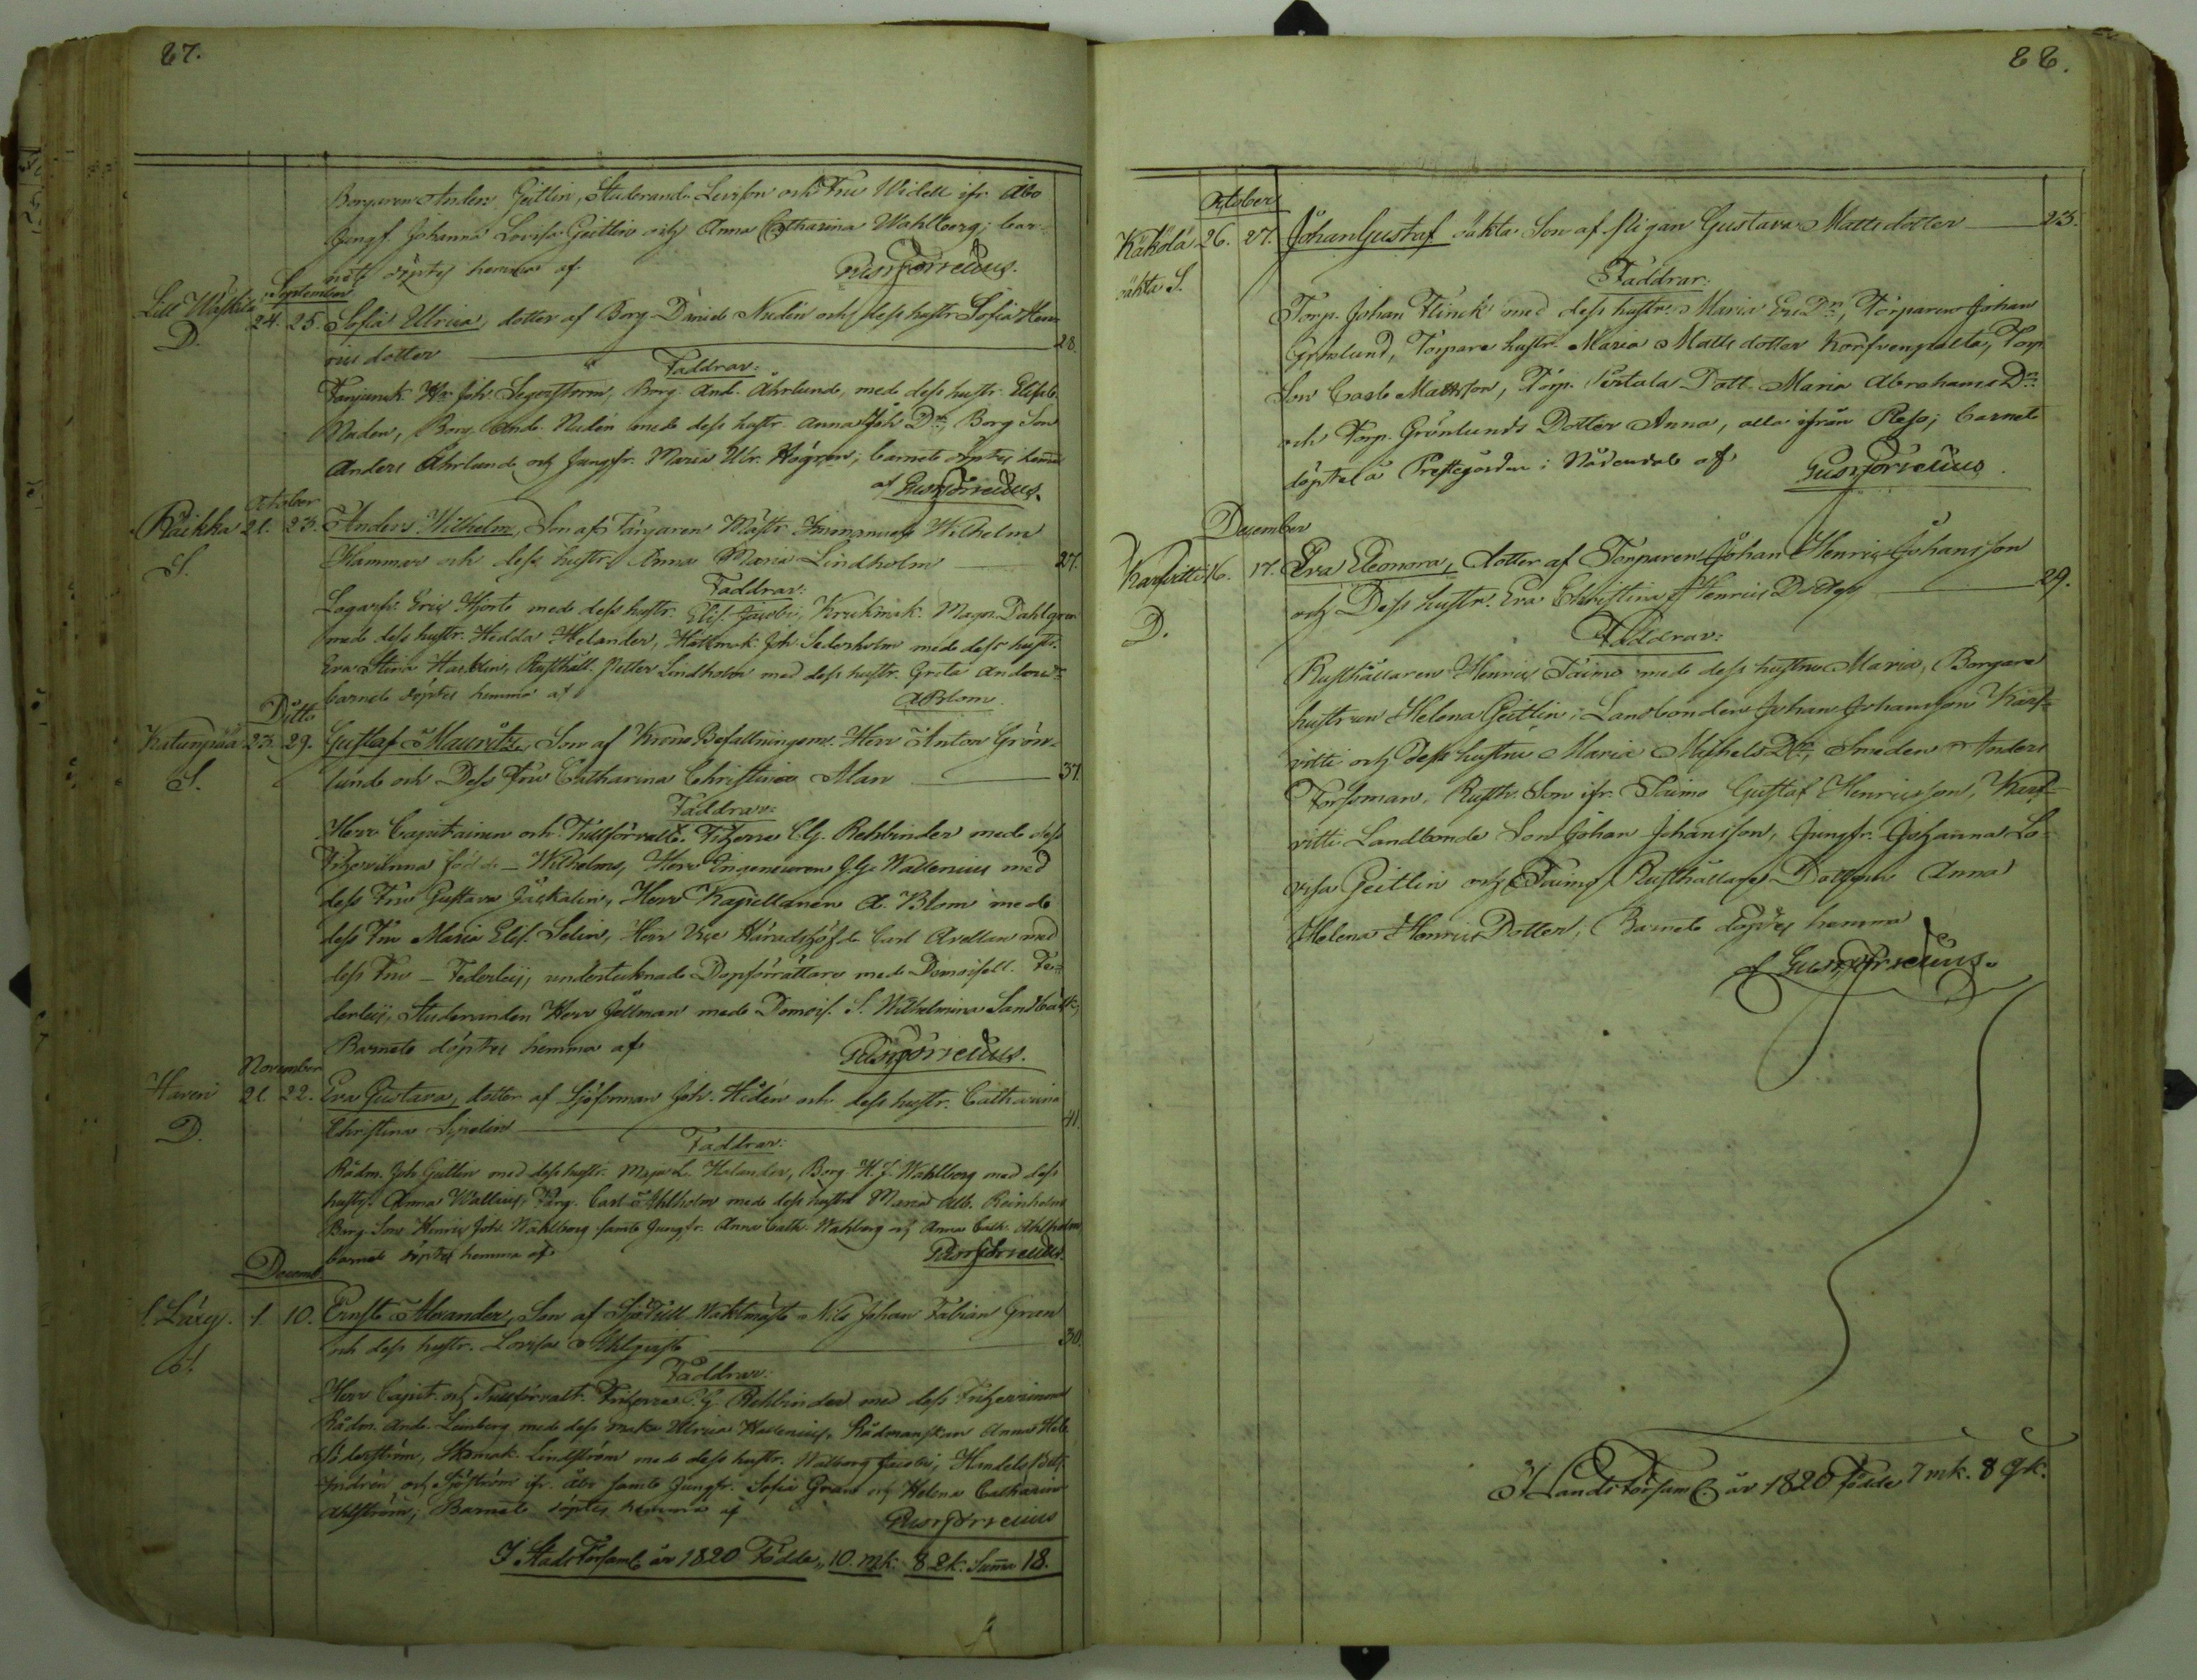 87.
Borgaren Anders Geitlin, Studerande Levison och Fru Widell ifr. Åbo
Jungf. Johanna Lovisa Geitlin och Anna Catharina Wahlberg; bar-
net döptes hemma af
September
Lill Wäskilä 24. 25. Sofia Ulrica, dotter af Borg. Daniel Nudin och dess hustr. Sofia Hen-
D.
rics dotter 28.
Faddrar:
Joh. Segerstrom, Borg. And. Åhrlund, med dess hustr. Elisab.
Nuden, Borg. And. Nudin med dess hustr. Anna Joh. Dr, Borg. Son
Anders Åhrlund och Jungfr. Maria Ulr. Högren; barnet döptes hemma
af
October
Raikka 21. 23. Anders Wilhelm, Son af Färgaren Mäst. Immanuel Wilhelm
S.
Hammar och dess hustr. Anna Maria Lindholm 27.
Faddrar:
Eric Hjort med dess hustr. Elis. Jacobi, Krukmak. Magn. Dahlgren
med dess hustr. Hedda Helander, Hattmak. Joh. Sederholm med dess hustr.
Eva Stina Hacklin, Rusthåll. Petter Lindholm med dess hustr. Greta Anders Dr
barnet döptes hemma af A Blom.
Ditto
Katunpää 23. 29. Gustaf Mauritz, Son af Krono Befallningsm. Herr Anton Grön-
S.
lund och Dess Fru Catharina Christina Alan 37.
Faddrar:
Herr Capitainen och Tullförvalt. Friherre C.G. Rehbinder med dess
Friherrinna född – Wilhelms, Herr Ingenieuren G.G. Wallenius med
dess Fru Gustava Jäskalin, Herr Kapellanen A. Blom med
dess Fru Maria Elis. Selin, Herr Vice Häradshöfd. Carl Avellan med
dess Fru – Federley, undertecknade Dopförrättare med Demoisell. Fe-
derley, Studeranden Herr Jällman med Demois. S. Wilhelmina Sandbäck;
Barnet döptes hemma af
November
Haven 21. 22. Eva Gustava, dotter af Sjöman Joh. Hiden och dess hustr. Catharina
D.
Christina Syrelin 41.
Faddrar:
Rådm. Joh. Geitlin med dess hustr. Maja L. Helander, Borg. H.J. Wahlberg med dess
hustr. Anna Wallius, Färg. Carl Ahlholm med dess hustru Maria Ulr. Reinholm
Borg. Son Henric Joh. Wahlberg samt Jungfr. Anna Cath. Wahlberg och Anna Cath. Ahlholm
barnet döptes hemma af
Decemb.
1 10. Ernst Alexander, Son af Sjötull Waktmäst. Nils Johan Fabian Gran
S.
och dess hustr. Lovisa Ahlqvist 30.
Faddrar:
Herr Capit. och Tullförvalt. Friherre C.G. Rehbinder med dess Friherrinna
Rådm. And. Leinberg med dess maka Ulrica Wallenius, Rådmanskan Anna Hel.
Söderström, Skomak. Lindström med dess hustr. Walborg Jacobi, Handels Betj.
Indrén och Sjöström ifr. Åbo samt Jungfr. Sofia Gran och Helena Catharina
Ahlström; Barnet döptes hemma af
I Stads Församl. år 1820 Födde 10. mk. 8 qk. Summa 18.
88.
October
Kåkola 26. 27. Johan Gustaf oäkta Son af pigan Gustava Mattsdotter 23.
oäkta S.
Faddrar:
Torp. Johan Flinck med dess hustr. Maria Ers Dr, Torparen Johan
Grönlund, Torpare hustr. Maria Matts dotter Korfvenpalta, Torp
Son Carl Mattsson, Torp. Dott. Maria Abrahams Dr
och Torp. Grönlunds Dotter Anna, alla ifrån Reso; barnet
döpt å Prestegården i Nådendal af
December
Karfvitti 16. 17. Eva Eleonora, dotter af Torparen Johan Henric Johansson
D.
och Dess hustr. Eva Christina Henrics Dotter 29.
Faddrar:
Rusthållaren Henric Taimo med dess hustru Maria, Borgare
hustrun Helena Geitlin, Landbonden Johan Johansson Karf-
vitti och dess hustru Maria Michels Dr, Smeden Anders
Forsman, Rusth. Son ifr. Taimo Gustaf Henricsson, Karf-
vitti Landbonde Son Johan Johansson, Jungfr. Johanna Lo-
visa Geitlin och Taimo Rusthållare Dottren Anna
Helena Henrics Dotter, Barnet döptes hemma
af
I Lands Församl. år 1820 födde 7 mk. 8 qk.